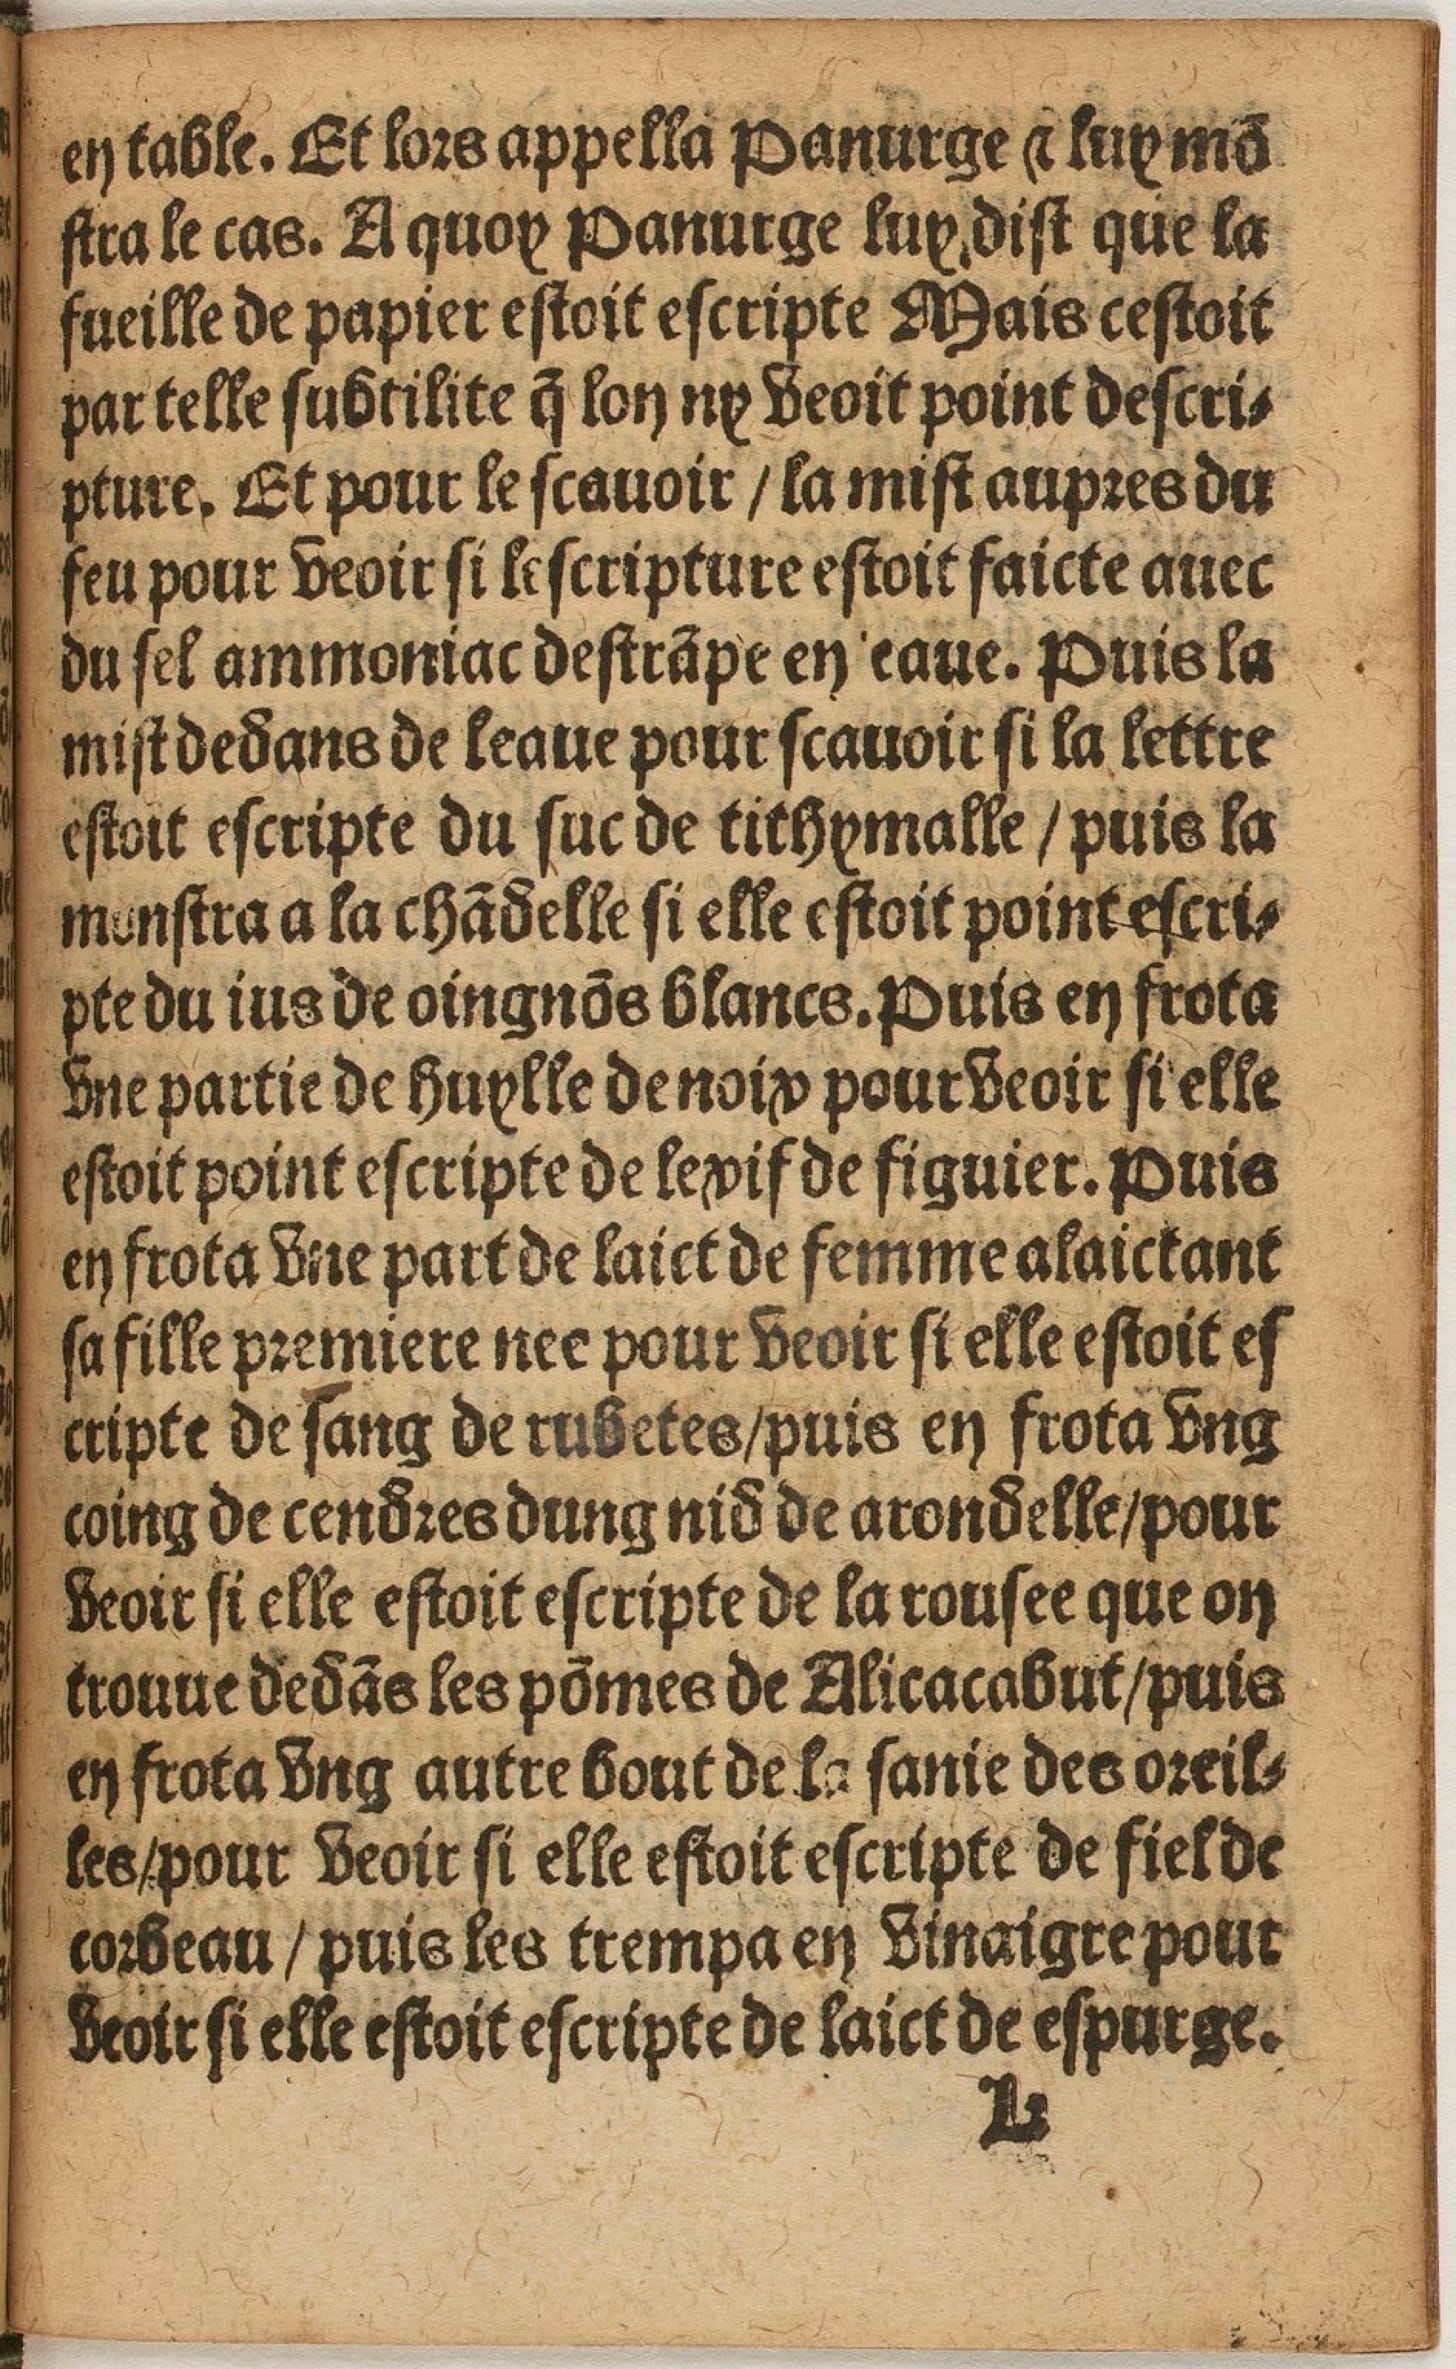 en table. Et lors appella Panurge ⁊ luy mõ
stra le cas. A quoy Panurge luy dist que la
fueille de papier estoit escripte Mais cestoit
par telle subtilite q̃ lon ny veoit point descri⸗
pture. Et pour le scauoir / la mist aupres du
feu pour veoir si lescripture estoit faicte auec
du sel ammoniac destrãpe en eaue. Puis la
mist dedans de leaue pour scauoir si la lettre
estoit escripte du suc de tithymalle / puis la
monstra a la chãdelle si elle estoit point escri⸗
pte du ius de oingnõs blancs. Puis en frota
vne partie de huylle de noix pour veoir si elle
estoit point escripte de lexif de figuier. Puis
en frota vne part de laict de femme alaictant
sa fille premiere nee pour veoir si elle estoit es
cripte de sang de rubetes / puis en frota vng
coing de cendres dung nid de arondelle / pour
veoir si elle estoit escripte de la rousee que on
trouue dedãs les põmes de Alicacabut / puis
en frota vng autre bout de la sanie des oreil⸗
les / pour veoir si elle estoit escripte de fiel de
corbeau / puis les trempa en vinaigre pour
veoir si elle estoit escripte de laict de espurge.
L